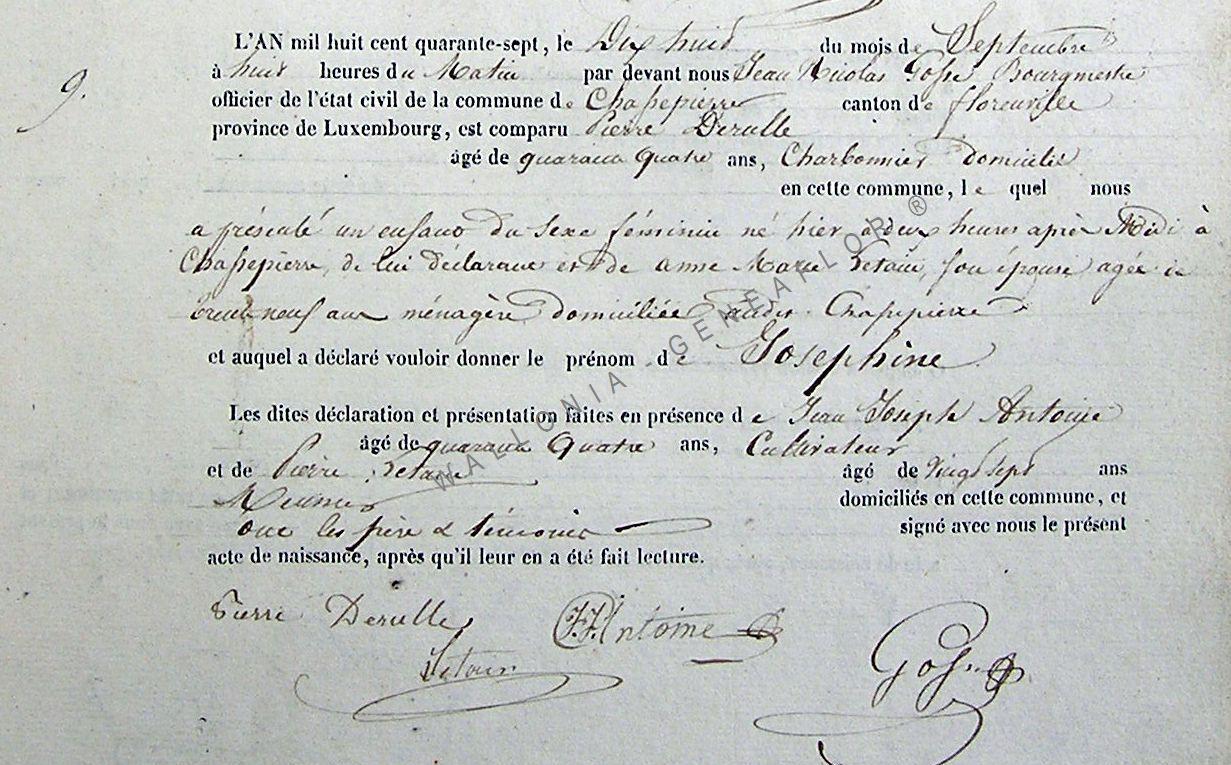 L'AN mil huit cent quarante-sept, le Dix huit du mois de Septembre
9. à huit heures du Matin par devant nous Jean Nicolas Gosse Bourgmestre
officier de l'état civil de la commune de Chassepierre canton de florenville
province de Luxembourg, est comparu Pierre Derulle
âgé de quarante quatre ans, Charbonnier domicilié
en cette commune, le quel nous
a présenté un enfant du sexe féminin né hier à deux heures après Midi à
Chassepierre, de lui déclarant et de anne Marie Letain, son épouse agée de
trente neuf ans ménagère domiciliée audit Chassepierre
et auquel a déclaré vouloir donner le prénom de Josephine
Les dites déclaration et présentation faites en présence de Jean Joseph Antoine
âgé de quarante quatre ans, Cultivateur
et de Pierre Letain âgé de Vingt sept ans
Meunier domiciliés en cette commune, et
ont les père & témoins signé avec nous le présent
acte de naissance, après qu'il leur en a été fait lecture.
Pierre Derulle JJAntoine
Letain Gosse
WALLONIA GENEALOR ®